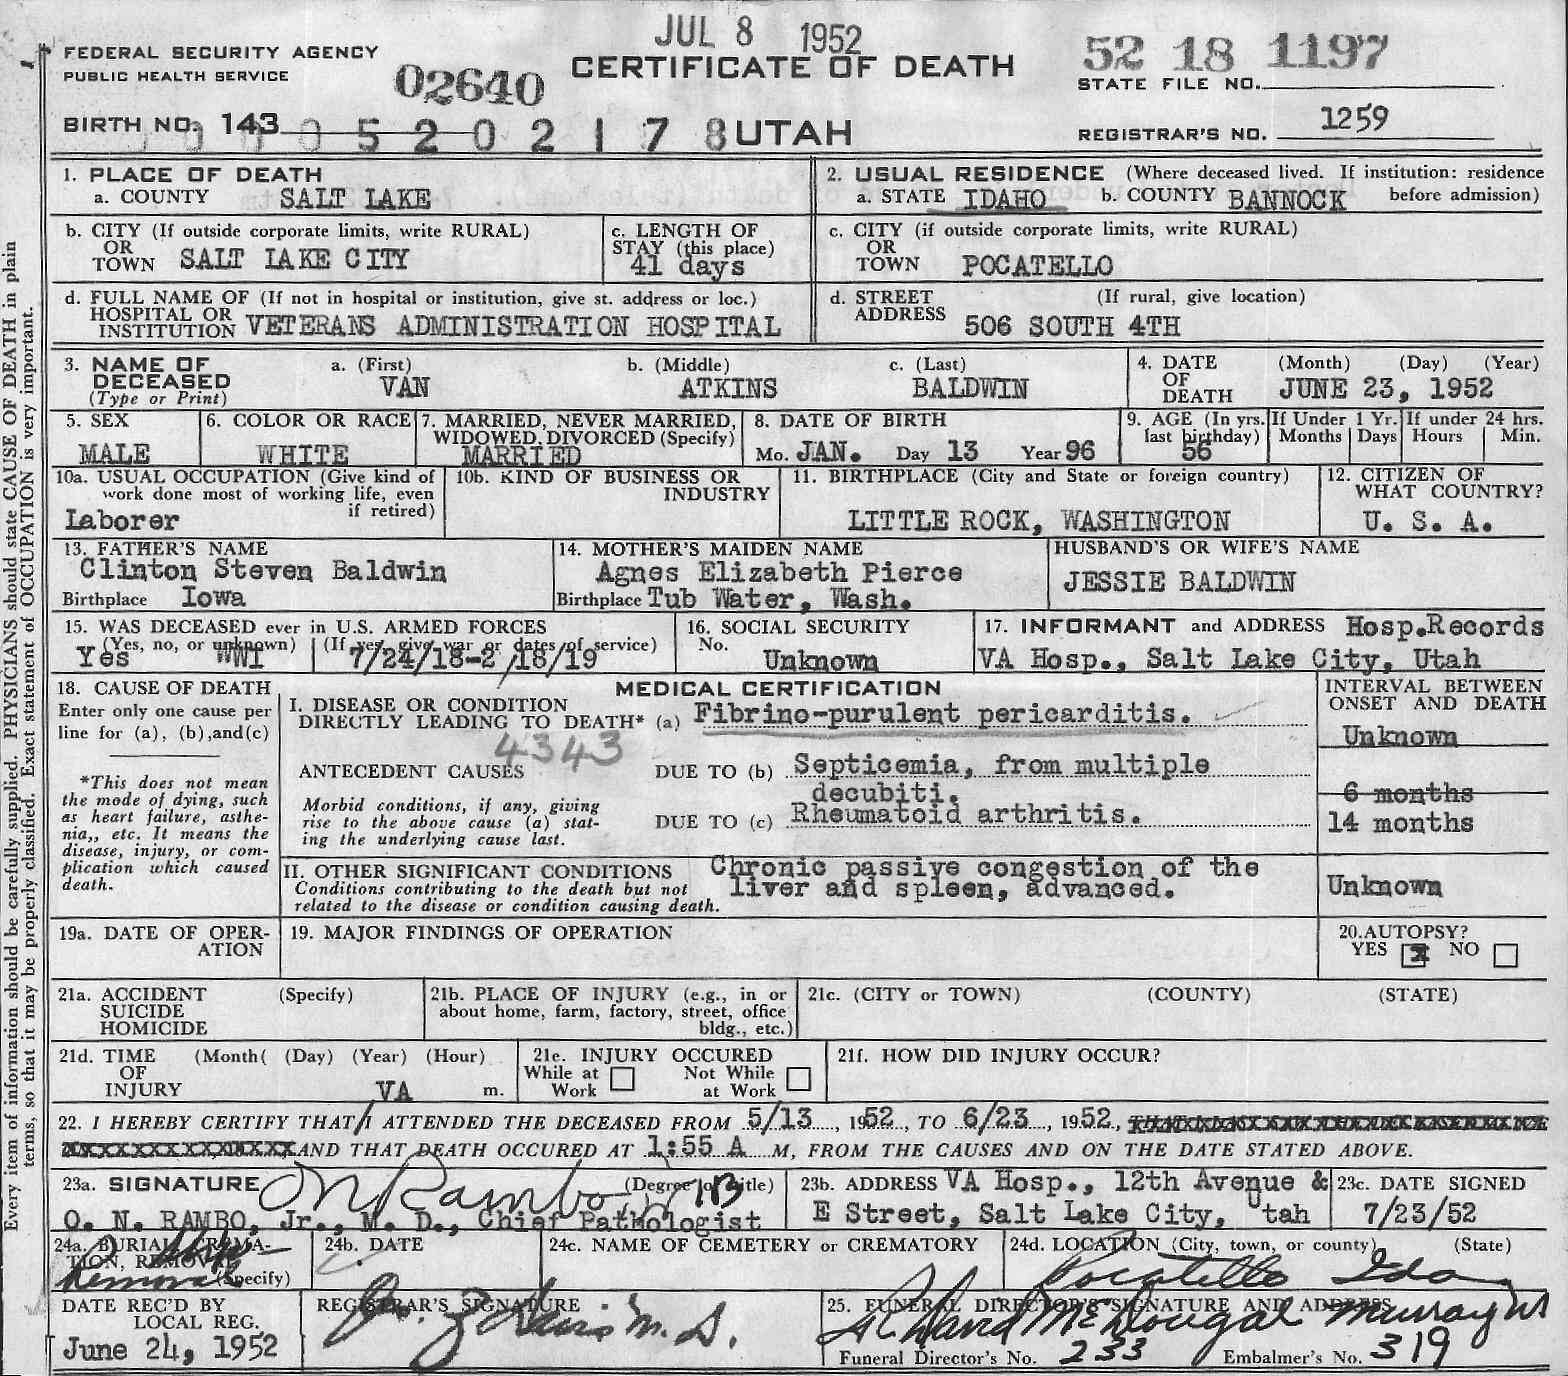 JUL 8 1952
FEDERAL SECURITY AGENCY
PUBLIC HEALTH SERVICE
02640
CERTIFICATE OF DEATH
52 18 1197
STATE FILE NO.
BIRTH NO. 143
5 2 0 2 1 7 8
UTAH
REGISTRAR'S NO. 1259
1. PLACE OF DEATH
a. COUNTY SALT LAKE
2. USUAL RESIDENCE (Where deceased lived. If institution: residence before admission)
a. STATE IDAHO b. COUNTY BANNOCK
b. CITY (If outside corporate limits, write RURAL)
OR
TOWN SALT LAKE CITY
c. LENGTH OF
STAY (this place)
41 days
c. CITY (if outside corporate limits, write RURAL)
OR
TOWN POCATELLO
d. FULL NAME OF (If not in hospital or institution, give st. address or loc.)
HOSPITAL OR
INSTITUTION VETERANS ADMINISTRATION HOSPITAL
d. STREET (If rural, give location)
ADDRESS 506 SOUTH 4TH
3. NAME OF
DECEASED
(Type or Print)
a. (First) b. (Middle) c. (Last)
VAN ATKINS BALDWIN
4. DATE
OF
DEATH
(Month) (Day) (Year)
JUNE 23, 1952
5. SEX
MALE
6. COLOR OR RACE
WHITE
7. MARRIED, NEVER MARRIED,
WIDOWED, DIVORCED (Specify)
MARRIED
8. DATE OF BIRTH
Mo. JAN. Day 13 Year 96
9. AGE (In yrs.
last birthday)
56
If Under 1 Yr.
Months Days
If under 24 hrs.
Hours Min.
10a. USUAL OCCUPATION (Give kind of
work done most of working life, even
if retired)
Laborer
10b. KIND OF BUSINESS OR
INDUSTRY
11. BIRTHPLACE (City and State or foreign country)
LITTLE ROCK, WASHINGTON
12. CITIZEN OF
WHAT COUNTRY?
U. S. A.
13. FATHER'S NAME
Clinton Steven Baldwin
Birthplace Iowa
14. MOTHER'S MAIDEN NAME
Agnes Elizabeth Pierce
Birthplace Tub Water, Wash.
HUSBAND'S OR WIFE'S NAME
JESSIE BALDWIN
15. WAS DECEASED ever in U.S. ARMED FORCES
(Yes, no, or unknown) (If yes, give war or dates of service)
Yes WWI 7/24/18-2/18/19
16. SOCIAL SECURITY
No.
Unknown
17. INFORMANT and ADDRESS Hosp.Records
VA Hosp., Salt Lake City, Utah
18. CAUSE OF DEATH
Enter only one cause per
line for (a), (b), and (c)
*This does not mean
the mode of dying, such
as heart failure, asthe-
nia,, etc. It means the
disease, injury, or com-
plication which caused
death.
MEDICAL CERTIFICATION
I. DISEASE OR CONDITION
DIRECTLY LEADING TO DEATH* (a) Fibrino-purulent pericarditis.
4343
ANTECEDENT CAUSES
DUE TO (b) Septicemia, from multiple
decubiti.
Morbid conditions, if any, giving
rise to the above cause (a) stat-
ing the underlying cause last.
DUE TO (c) Rheumatoid arthritis.
II. OTHER SIGNIFICANT CONDITIONS
Conditions contributing to the death but not
related to the disease or condition causing death.
Chronic passive congestion of the
liver and spleen, advanced.
INTERVAL BETWEEN
ONSET AND DEATH
Unknown
6 months
14 months
Unknown
19a. DATE OF OPER-
ATION
19. MAJOR FINDINGS OF OPERATION
20. AUTOPSY?
YES X NO
21a. ACCIDENT (Specify)
SUICIDE
HOMICIDE
21b. PLACE OF INJURY (e.g., in or
about home, farm, factory, street, office
bldg., etc.)
21c. (CITY or TOWN) (COUNTY) (STATE)
21d. TIME (Month( (Day) (Year) (Hour)
OF
INJURY m.
21e. INJURY OCCURED
While at Work Not While at Work
21f. HOW DID INJURY OCCUR?
VA
22. I HEREBY CERTIFY THAT/I ATTENDED THE DECEASED FROM 5/13, 1952, TO 6/23, 1952,
AND THAT DEATH OCCURED AT 1:55 A M, FROM THE CAUSES AND ON THE DATE STATED ABOVE.
23a. SIGNATURE (Degree or title)
ON Rambo Jr MD
O. N. RAMBO, Jr., M. D., Chief Pathologist
23b. ADDRESS VA Hosp., 12th Avenue &
E Street, Salt Lake City, Utah
23c. DATE SIGNED
7/23/52
24a. BURIAL, CREMA-
TION, REMOVAL
(Specify)
Removal
24b. DATE
24c. NAME OF CEMETERY or CREMATORY
24d. LOCATION (City, town, or county) (State)
Pocatello Ida
DATE REC'D BY
LOCAL REG.
June 24, 1952
REGISTRAR'S SIGNATURE
M. D.
25. FUNERAL DIRECTOR'S SIGNATURE AND ADDRESS
McDougal Murray Ut
Funeral Director's No. 233 Embalmer's No. 319
Every item of information should be carefully supplied. PHYSICIANS should state CAUSE OF DEATH in plain
terms, so that it may be properly classified. Exact statement of OCCUPATION is very important.